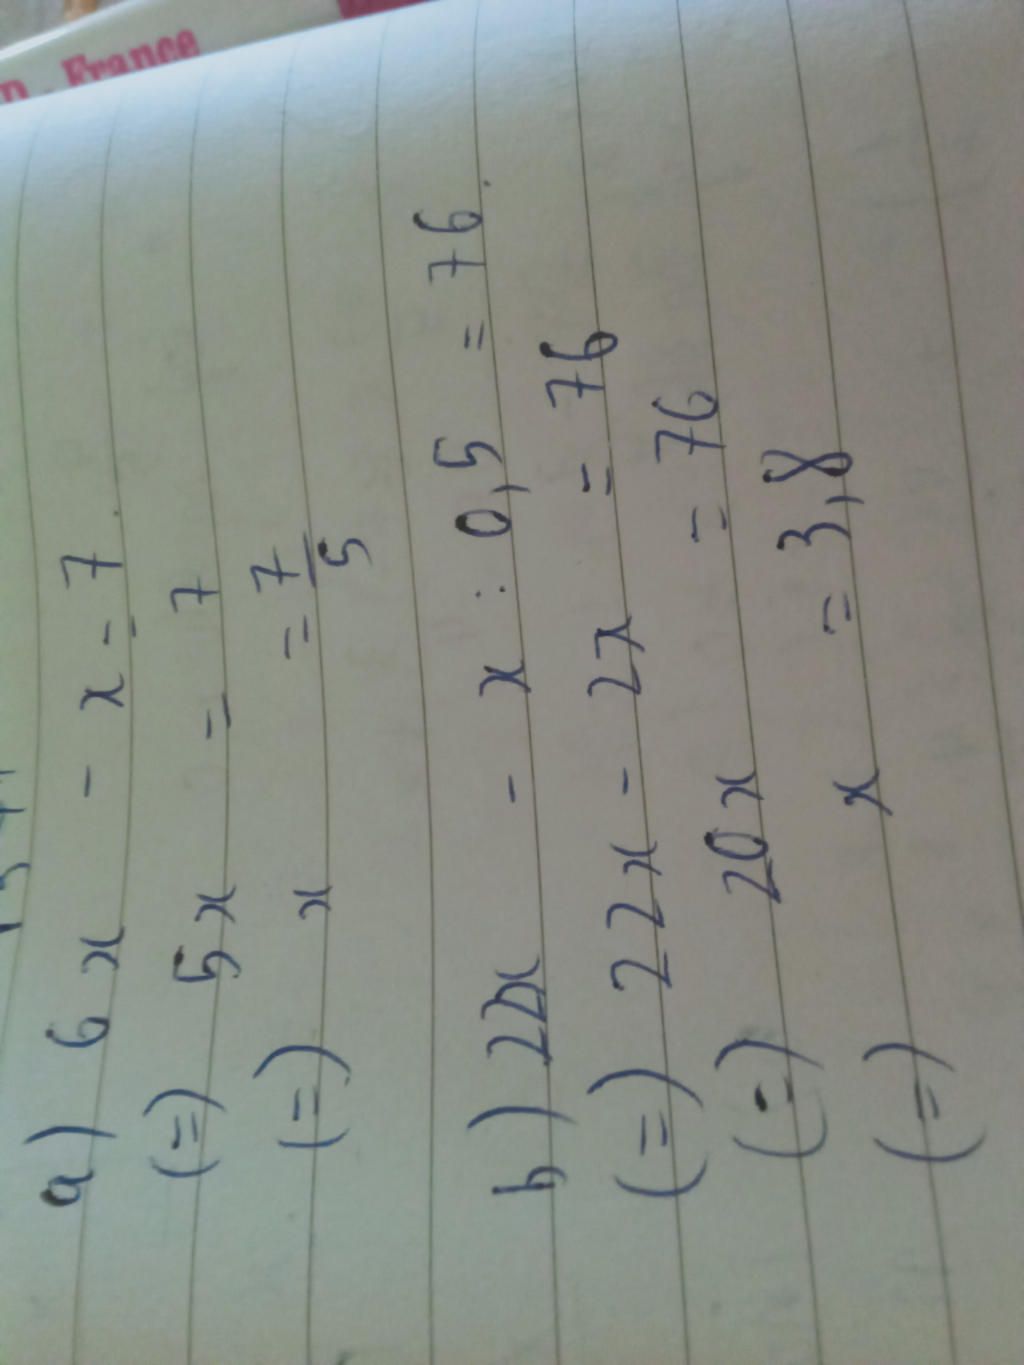 D. France
a) 6x - x = 7
(=) 5x = 7
(=) x = 7/5
b) 22x - x : 0,5 = 76
(=) 22x - 2x = 76
(=) 20x = 76
(=) x = 3,8